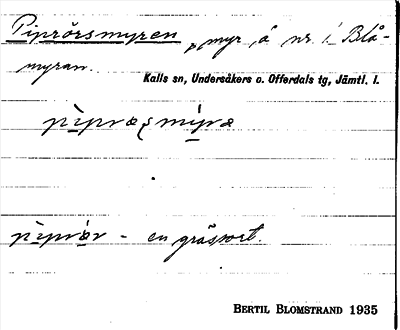 Piprörsmyren, myr å nr. i Blå-
myran.
Kalls sn, Undersåkers o. Offerdals tg, Jämtl. l.
pìpræsmỳræ
pìprör - en grässort.
BERTIL BLOMSTRAND 1935